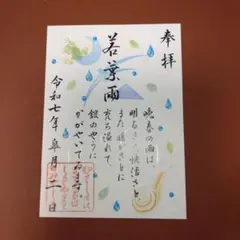 奉拝
若葉雨
晩春の雨は
明るさと快活さと
また暖かさとに
充ち溢れて
銀のやうに
かがやいてゐます
令和七年皐月二一日